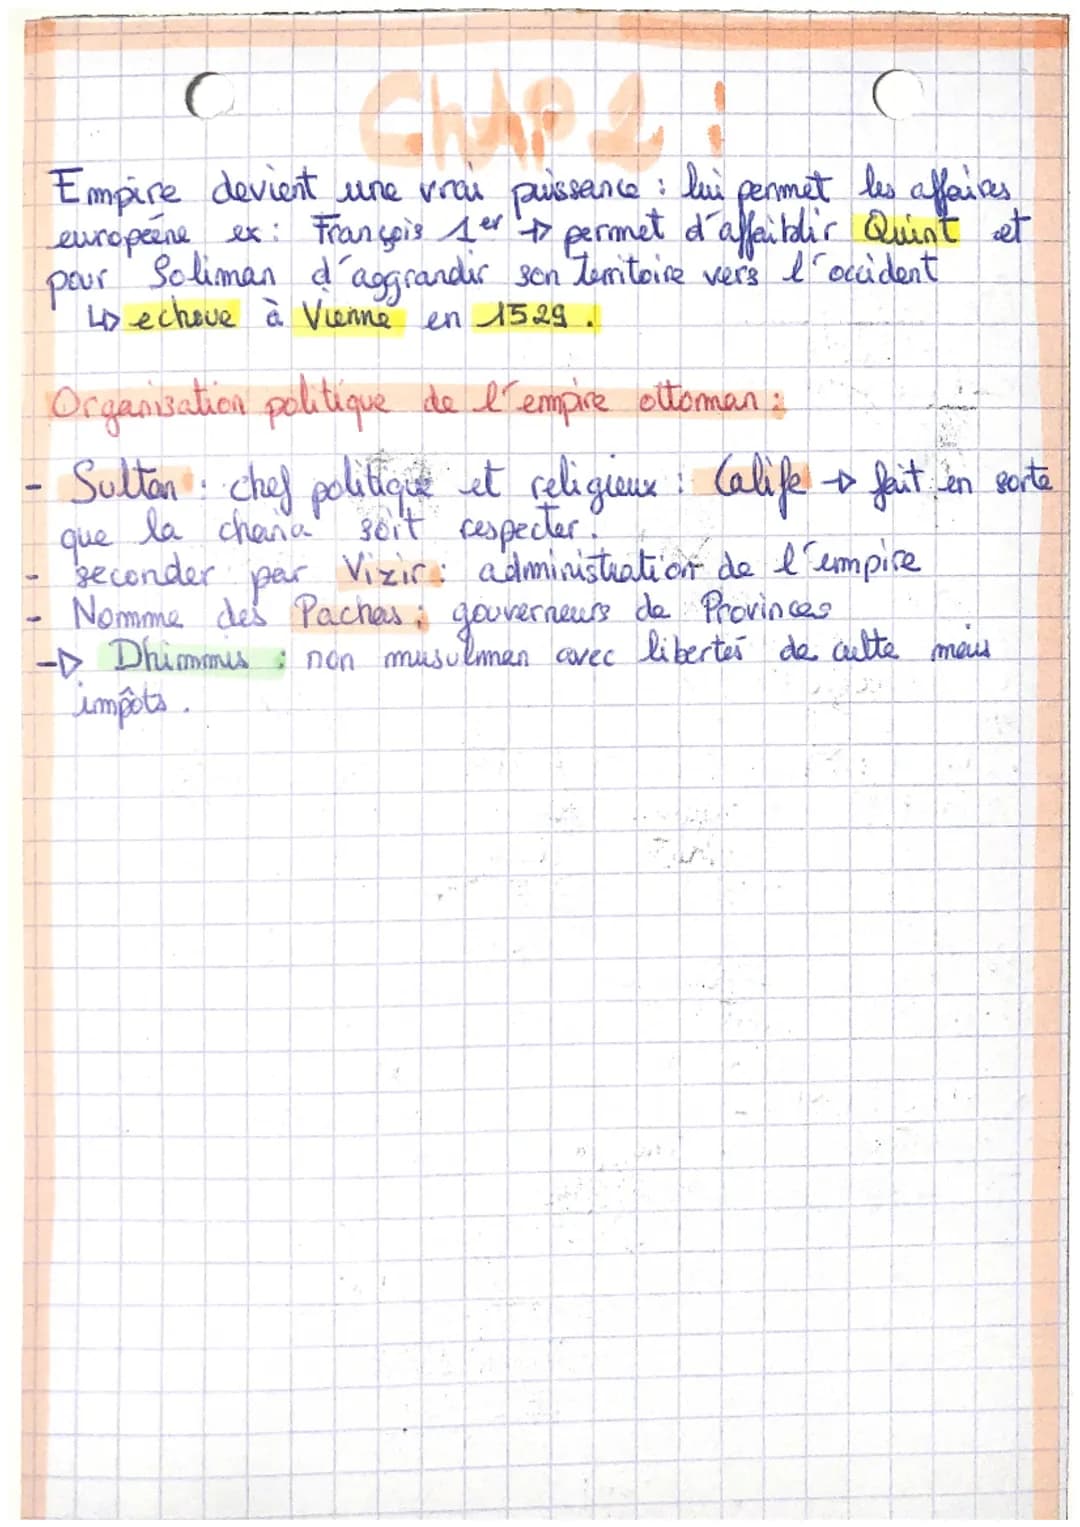 Chap 2 :
Empire devient une vrai puissance : lui permet les affaires
européene ex : François 1er → permet d'affaiblir Quint et
pour Soliman d'aggrandir son territoire vers l'occident
↳ echoue à Vienne en 1529.
Organisation politique de l'empire ottoman :
- Sultan : chef politique et religieux : Calife → fait en sorte
que la charia soit respecter.
- seconder par Vizir : administration de l'empire
- Nomme des Pachas : gouverneurs de Provinces
→ Dhimmis : non musulman avec libertés de culte mais
impôts.